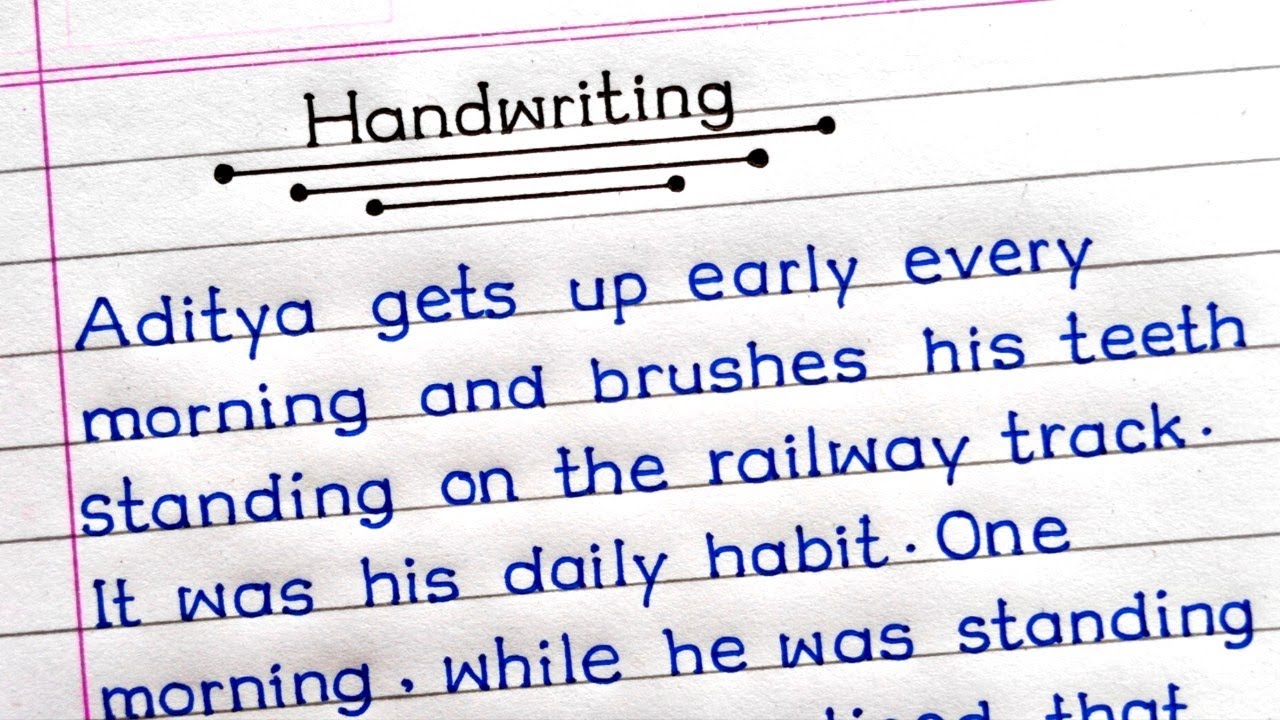 Handwriting
Aditya gets up early every
morning and brushes his teeth
standing on the railway track.
It was his daily habit. One
morning, while he was standing
that